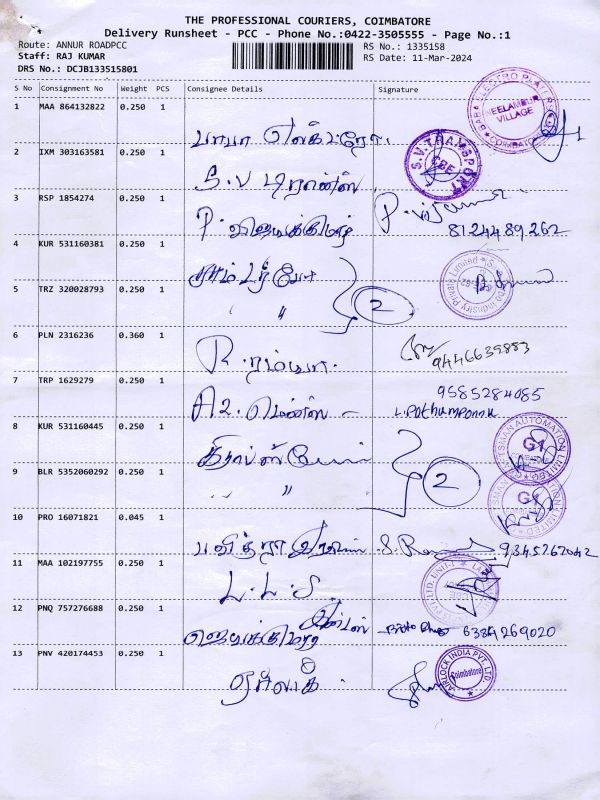 THE PROFESSIONAL COURIERS, COIMBATORE
Delivery Runsheet - PCC - Phone No.:0422-3505555 - Page No.:1
Route: ANNUR ROADPCC
Staff: RAJ KUMAR
DRS No.: DCJB133515801
RS No.: 1335158
RS Date: 11-Mar-2024
S No Consignment No Weight PCS Consignee Details Signature
1 MAA 864132822 0.250 1
பாபா எலக்ட்ரோ
NEELAMBUR VILLAGE COIMBATORE
2 IXM 303163581 0.250 1
S.V டிரான்ஸ்
S.V.TRANSPORT CBE
3 RSP 1854274 0.250 1
P. விஜயக்குமார்
8124489262
4 KUR 531160381 0.250 1
5 TRZ 320028793 0.250 1
" 2
6 PLN 2316236 0.360 1
R. ரம்யா
9446639883
7 TRP 1629279 0.250 1
A2. மென்ஸ் -
9585284085
L.Pothumponnu
8 KUR 531160445 0.250 1
CRAFTSMAN AUTOMATION LIMITED G1
9 BLR 5352060292 0.250 1
" " 2
CRAFTSMAN AUTOMATION LIMITED G1
10 PRO 16071821 0.045 1
பவித்ரா
9345267042
11 MAA 102197755 0.250 1
L.L.S
PVT LTD, UNIT-I
12 PNQ 757276688 0.250 1
6384269020
13 PNV 420174453 0.250 1
ஏர்லாக்
AIRLOCK INDIA PVT. LTD. Coimbatore